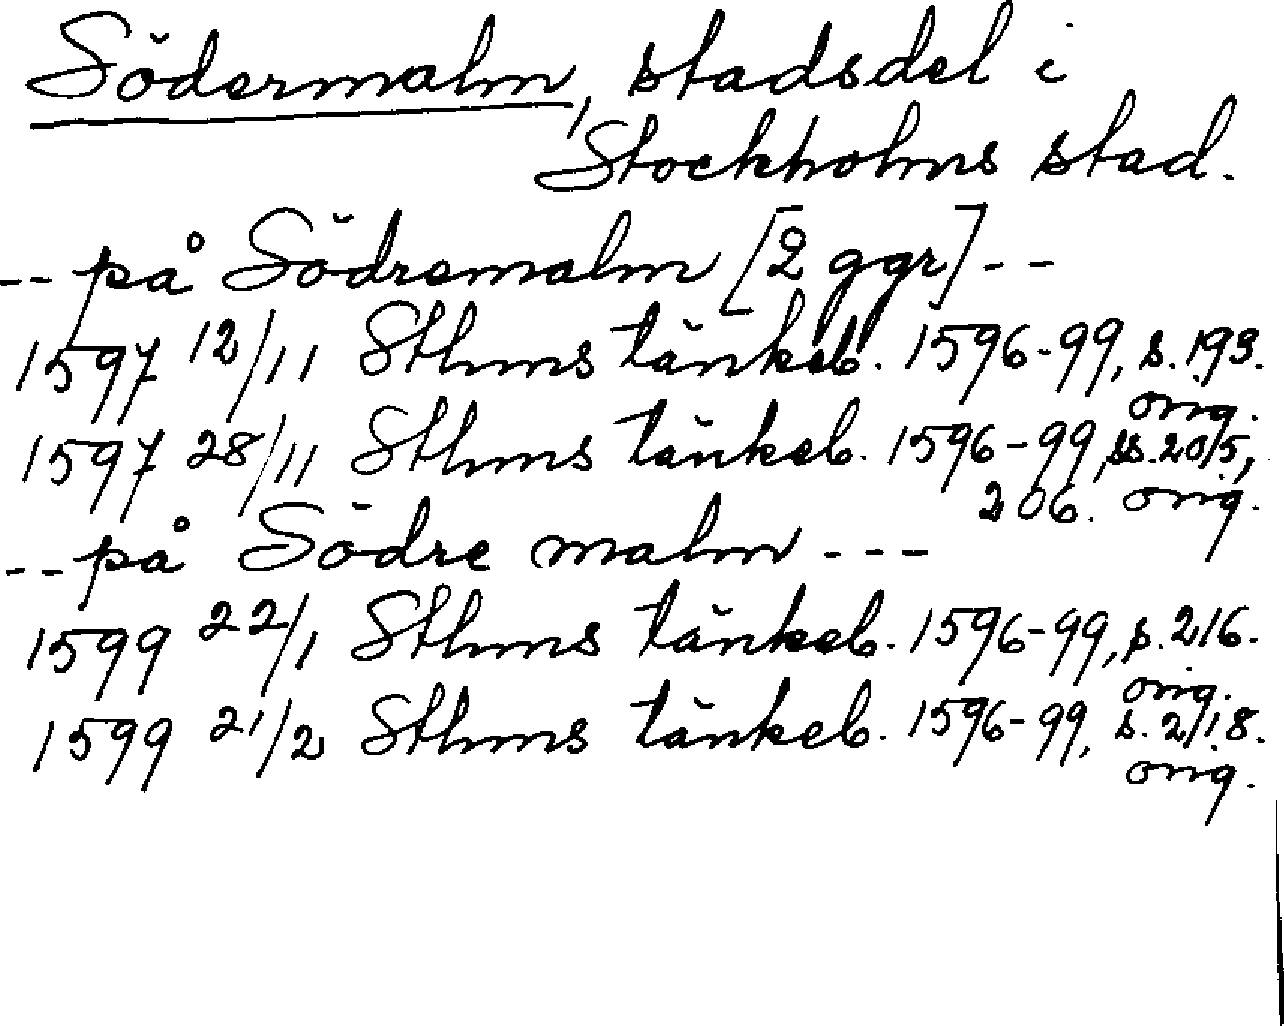 Södermalm, stadsdel i
Stockholms stad.
-- på Södremalm [2 ggr] --
1597 12/11 Sthms tänkeb. 1596-99, s. 193.
orig.
1597 28/11 Sthms tänkeb. 1596-99, ss. 205,
206. orig.
-- på Södre malm ---
1599 22/1 Sthms tänkeb. 1596-99, s. 216.
orig.
1599 21/2 Sthms tänkeb. 1596-99, s. 218.
orig.